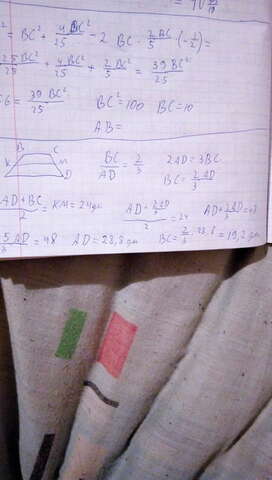 ² = BC² + 4BC²/25 - 2 BC · 2BC/5 · (-1/2) =
25BC²/25 + 4BC²/25 + 2/5 BC² = 39BC²/25
56 = 39BC²/25 BC² = 100 BC = 10
AB =
B C K M D
BC/AD = 2/3 2AD = 3BC
BC = 2AD/3
AD + BC/2 = KM = 24дм AD + 2AD/3/2 = 24 AD + 2AD/3 = 48
5AD/3 = 48 AD = 28,8 дм BC = 2/3 · 28,8 = 19,2 дм